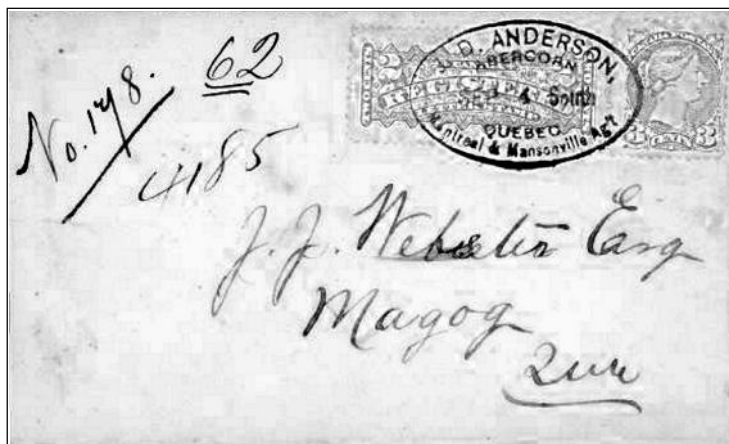 62
No. 178.
4185
J. D. ANDERSON,
ABERCORN
4 South
QUEBEC.
Montreal & Mansonville Ag't
3 3
J. J. Webster Esq
Magog
Que